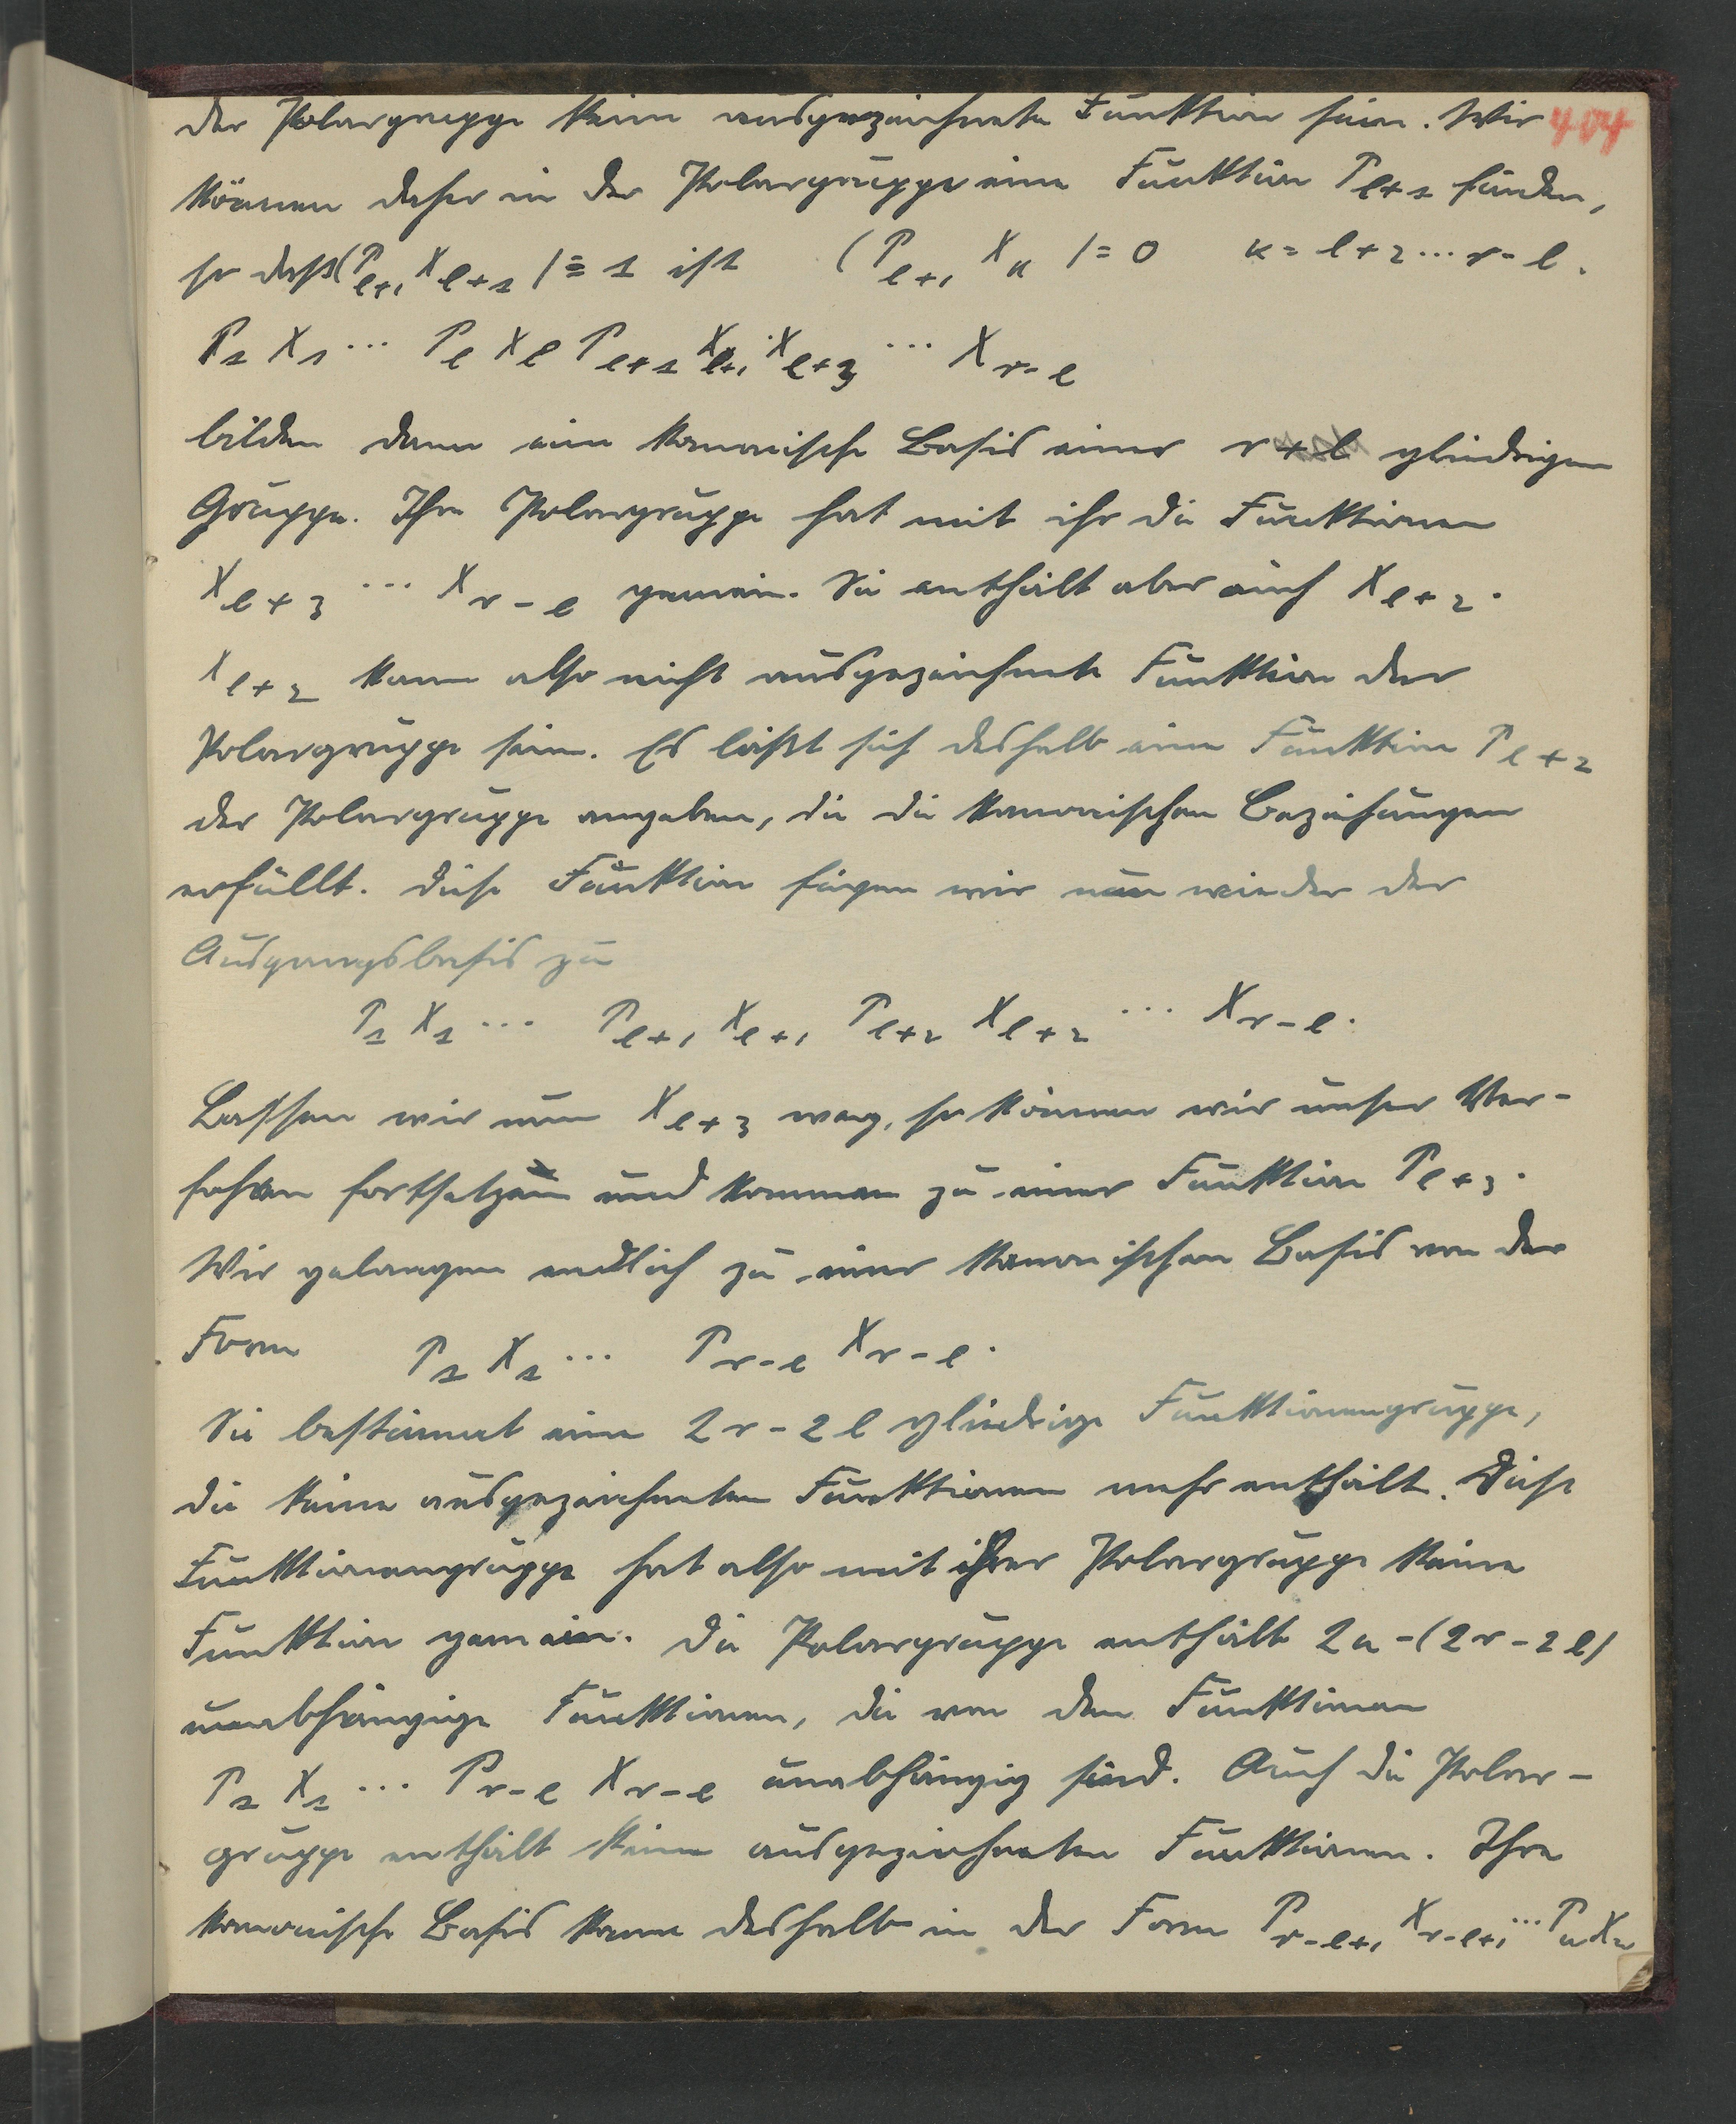 der Polargruppe keine ausgezeichnete Funktion sein. Wir 404
können daher in der Polargruppe eine Funktion P_{l+1} finden,
so daß (P_{l+1} X_{l+1}) = 1 ist (P_{l+1} X_κ) = 0 κ = l+2 ... r-l.
P_1 X_1 ... P_l X_l P_{l+1} X_{l+1} X_{l+3} ... X_{r-l}
bilden dann eine kanonische Basis einer r gliedrigen
Gruppe. Ihre Polargruppe hat mit ihr die Funktionen
X_{l+3} ... X_{r-l} gemein. Sie enthält aber auch X_{l+2}.
X_{l+2} kann also nicht ausgezeichnete Funktion der
Polargruppe sein. Es läßt sich deshalb eine Funktion P_{l+2}
der Polargruppe angeben, die die kanonischen Beziehungen
erfüllt. Diese Funktion fügen wir nun wieder der
Ausgangsbasis zu
P_1 X_1 ... P_{l+1} X_{l+1} P_{l+2} X_{l+2} ... X_{r-l}.
Lassen wir nun X_{l+3} weg, so können wir unser Ver-
fahren fortsetzen und kommen zu einer Funktion P_{l+3}.
Wir gelangen endlich zu einer kanonischen Basis von der
Form P_1 X_1 ... P_{r-l} X_{r-l}.
Sie bestimmt eine 2r-2l gliedrige Funktionengruppe,
die keine ausgezeichneten Funktionen mehr enthält. Diese
Funktionengruppe hat also mit ihrer Polargruppe keine
Funktion gemein. Die Polargruppe enthält 2n-(2r-2l)
unabhängige Funktionen, die von den Funktionen
P_1 X_1 ... P_{r-l} X_{r-l} unabhängig sind. Auch die Polar-
gruppe enthält keine ausgezeichneten Funktionen. Ihre
kanonische Basis kann deshalb in der Form P_{r-l+1} X_{r-l+1} ... P_n X_n